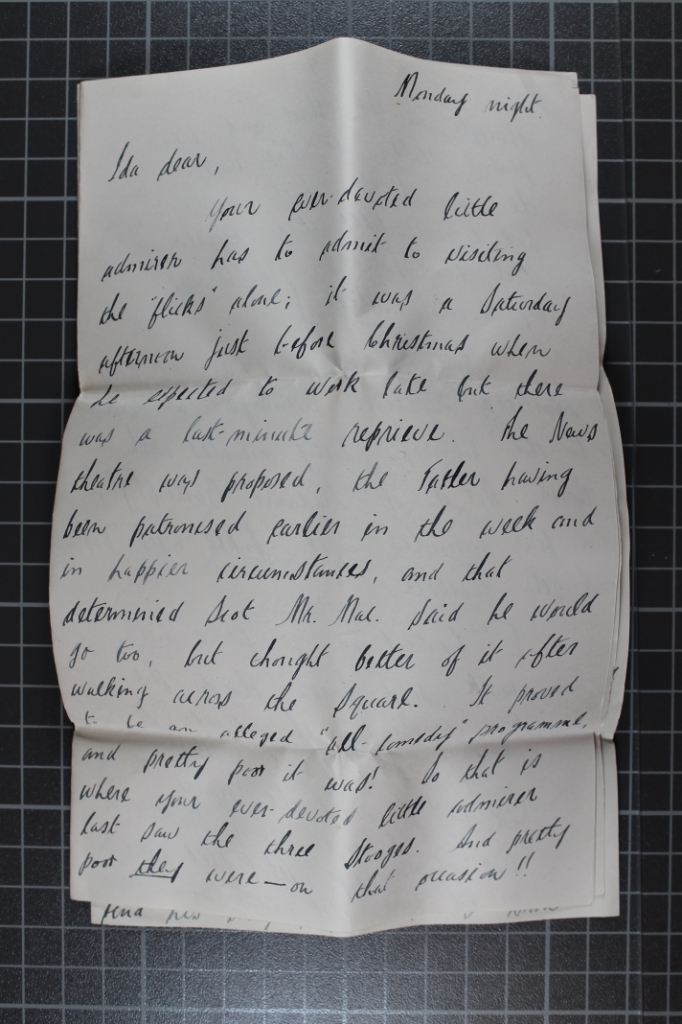 Monday night.
Ida dear,
Your ever-devoted little
admirer has to admit to visiting
the "flicks" alone; it was a Saturday
afternoon just before Christmas when
he expected to work late but there
was a last-minute reprieve. The News
theatre was proposed, the Tatler having
been patronised earlier in the week and
in happier circumstances, and that
determined Scot Mr. Mac. said he would
go too, but thought better of it after
walking across the Square. It proved
to be an alleged "all-comedy" programme,
and pretty poor it was! So that is
where your ever-devoted little admirer
last saw the three Stooges. And pretty
poor they were — on that occasion!!